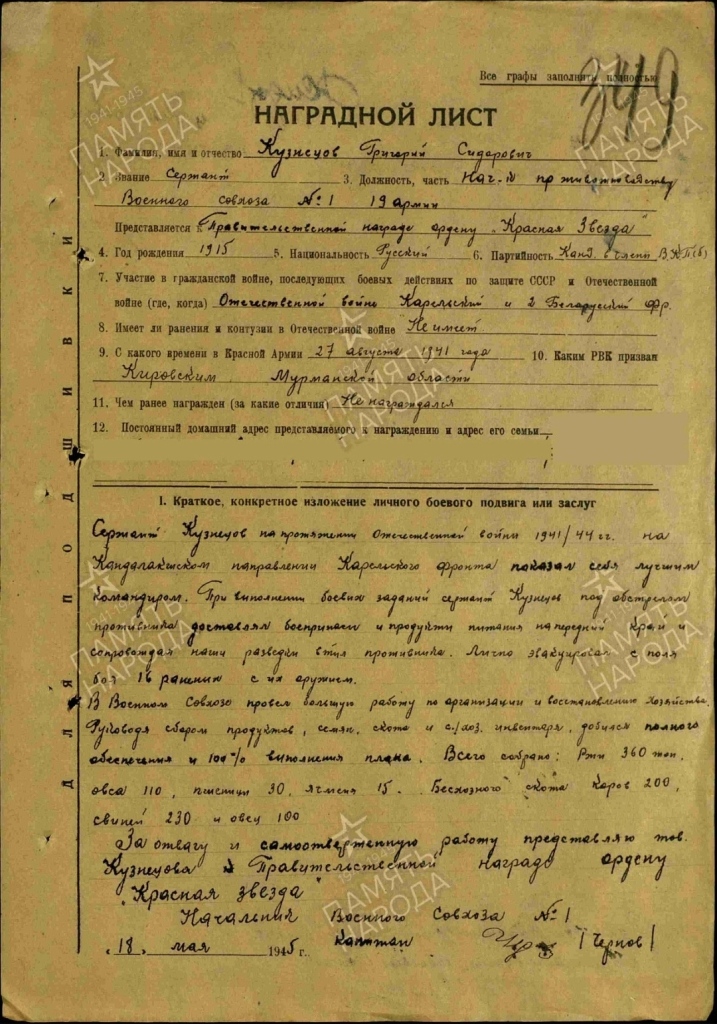 349
Все графы заполнить полностью
НАГРАДНОЙ ЛИСТ
1. Фамилия, имя и отчество Кузнецов Григорий Сидорович
2. Звание Сержант 3. Должность, часть Нач-к по животноводству
Военного совхоза №1 19 армии
Представляется к Правительственной награде ордену "Красная Звезда"
4. Год рождения 1915 5. Национальность Русский 6. Партийность Канд. в члены ВКП(б)
7. Участие в гражданской войне, последующих боевых действиях по защите СССР и Отечественной
войне (где, когда) Отечественной войне Карельский и 2 Белорусский фр.
8. Имеет ли ранения и контузии в Отечественной войне Не имеет
9. С какого времени в Красной Армии 27 августа 1941 года 10. Каким РВК призван
Кировским Мурманской области
11. Чем ранее награжден (за какие отличия) Не награждался
12. Постоянный домашний адрес представляемого к награждению и адрес его семьи
ДЛЯ ПОДШИВКИ
I. Краткое, конкретное изложение личного боевого подвига или заслуг
Сержант Кузнецов на протяжении Отечественной войны 1941/44 гг. на
Кандалакшском направлении Карельского фронта показал себя лучшим
командиром. При выполнении боевых заданий сержант Кузнецов под обстрелом
противника доставлял боеприпасы и продукты питания на передний край и
сопровождая наши разведки в тыл противника. Лично эвакуировал с поля
боя 16 раненых с их оружием.
В Военном Совхозе провел большую работу по организации и восстановлению хозяйства.
Руководя сбором продуктов, семян, скота и с/хоз. инвентаря, добился полного
обеспечения и 100% выполнения плана. Всего собрано: Ржи 360 тон,
овса 110, пшеницы 30, ячменя 15. Бесхозного скота коров 200,
свиней 230 и овец 100
За отвагу и самоотверженную работу представляю тов.
Кузнецова к Правительственной награде ордену
"Красная звезда"
Начальник Военного Совхоза №1
"18" мая 1945 г. капитан /Чернов/
1941-1945
ПАМЯТЬ НАРОДА